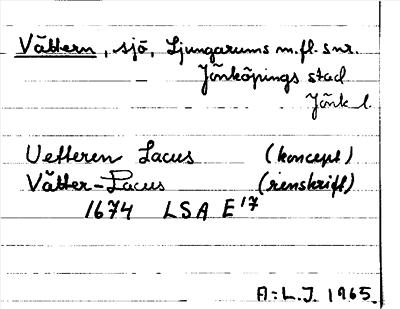 Vättern, sjö, Ljungarums m.fl. snr.
Jönköpings stad
Jönk l.
Vetteren Lacus (koncept)
Vätter-Lacus (renskrift)
1674 LSA E17
A:L.J. 1965